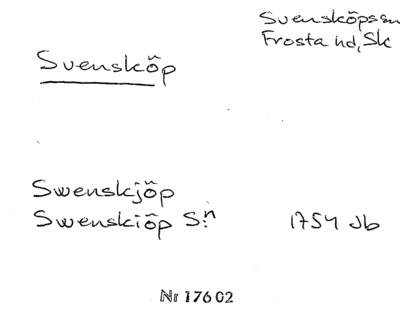 Svensköps sn
Frosta hd, Sk
Svensköp
Swenskjöp
Swenskiöp S:n 1754 Jb
Nr 17602